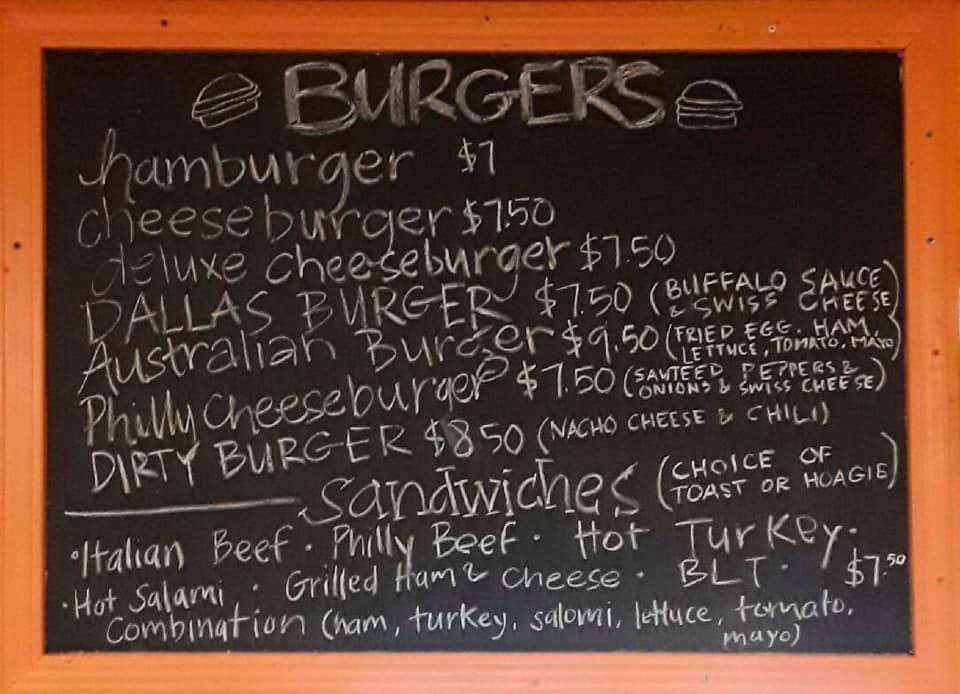 BURGERS
hamburger $7
cheeseburger $7.50
deluxe cheeseburger $7.50
DALLAS BURGER $7.50 (BUFFALO SAUCE & SWISS CHEESE)
Australian Burger $9.50 (FRIED EGG, HAM, LETTUCE, TOMATO, MAYO)
Philly Cheeseburger $7.50 (SAUTEED PEPPERS & ONIONS & SWISS CHEESE)
DIRTY BURGER $8.50 (NACHO CHEESE & CHILI)
Sandwiches (CHOICE OF TOAST OR HOAGIE)
• Italian Beef • Philly Beef • Hot Turkey •
• Hot Salami • Grilled Ham & Cheese • BLT • $7.50
Combination (ham, turkey, salomi, lettuce, tomato, mayo)